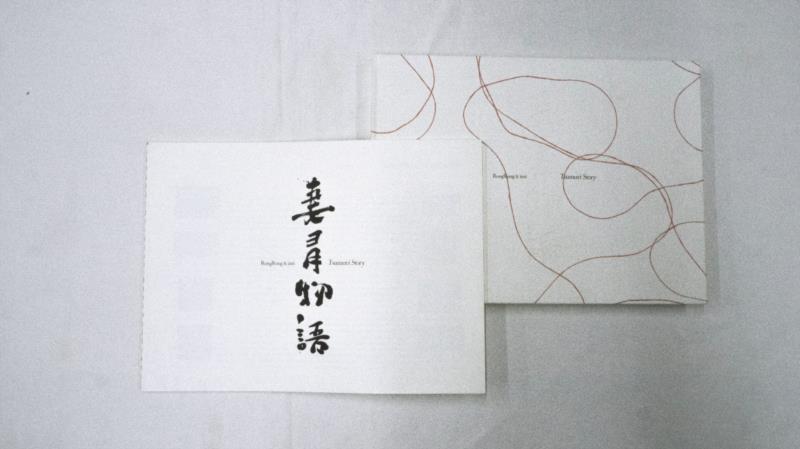 妻有物語
RongRong & inri
Tsumari Story
RongRong & inri
Tsumari Story